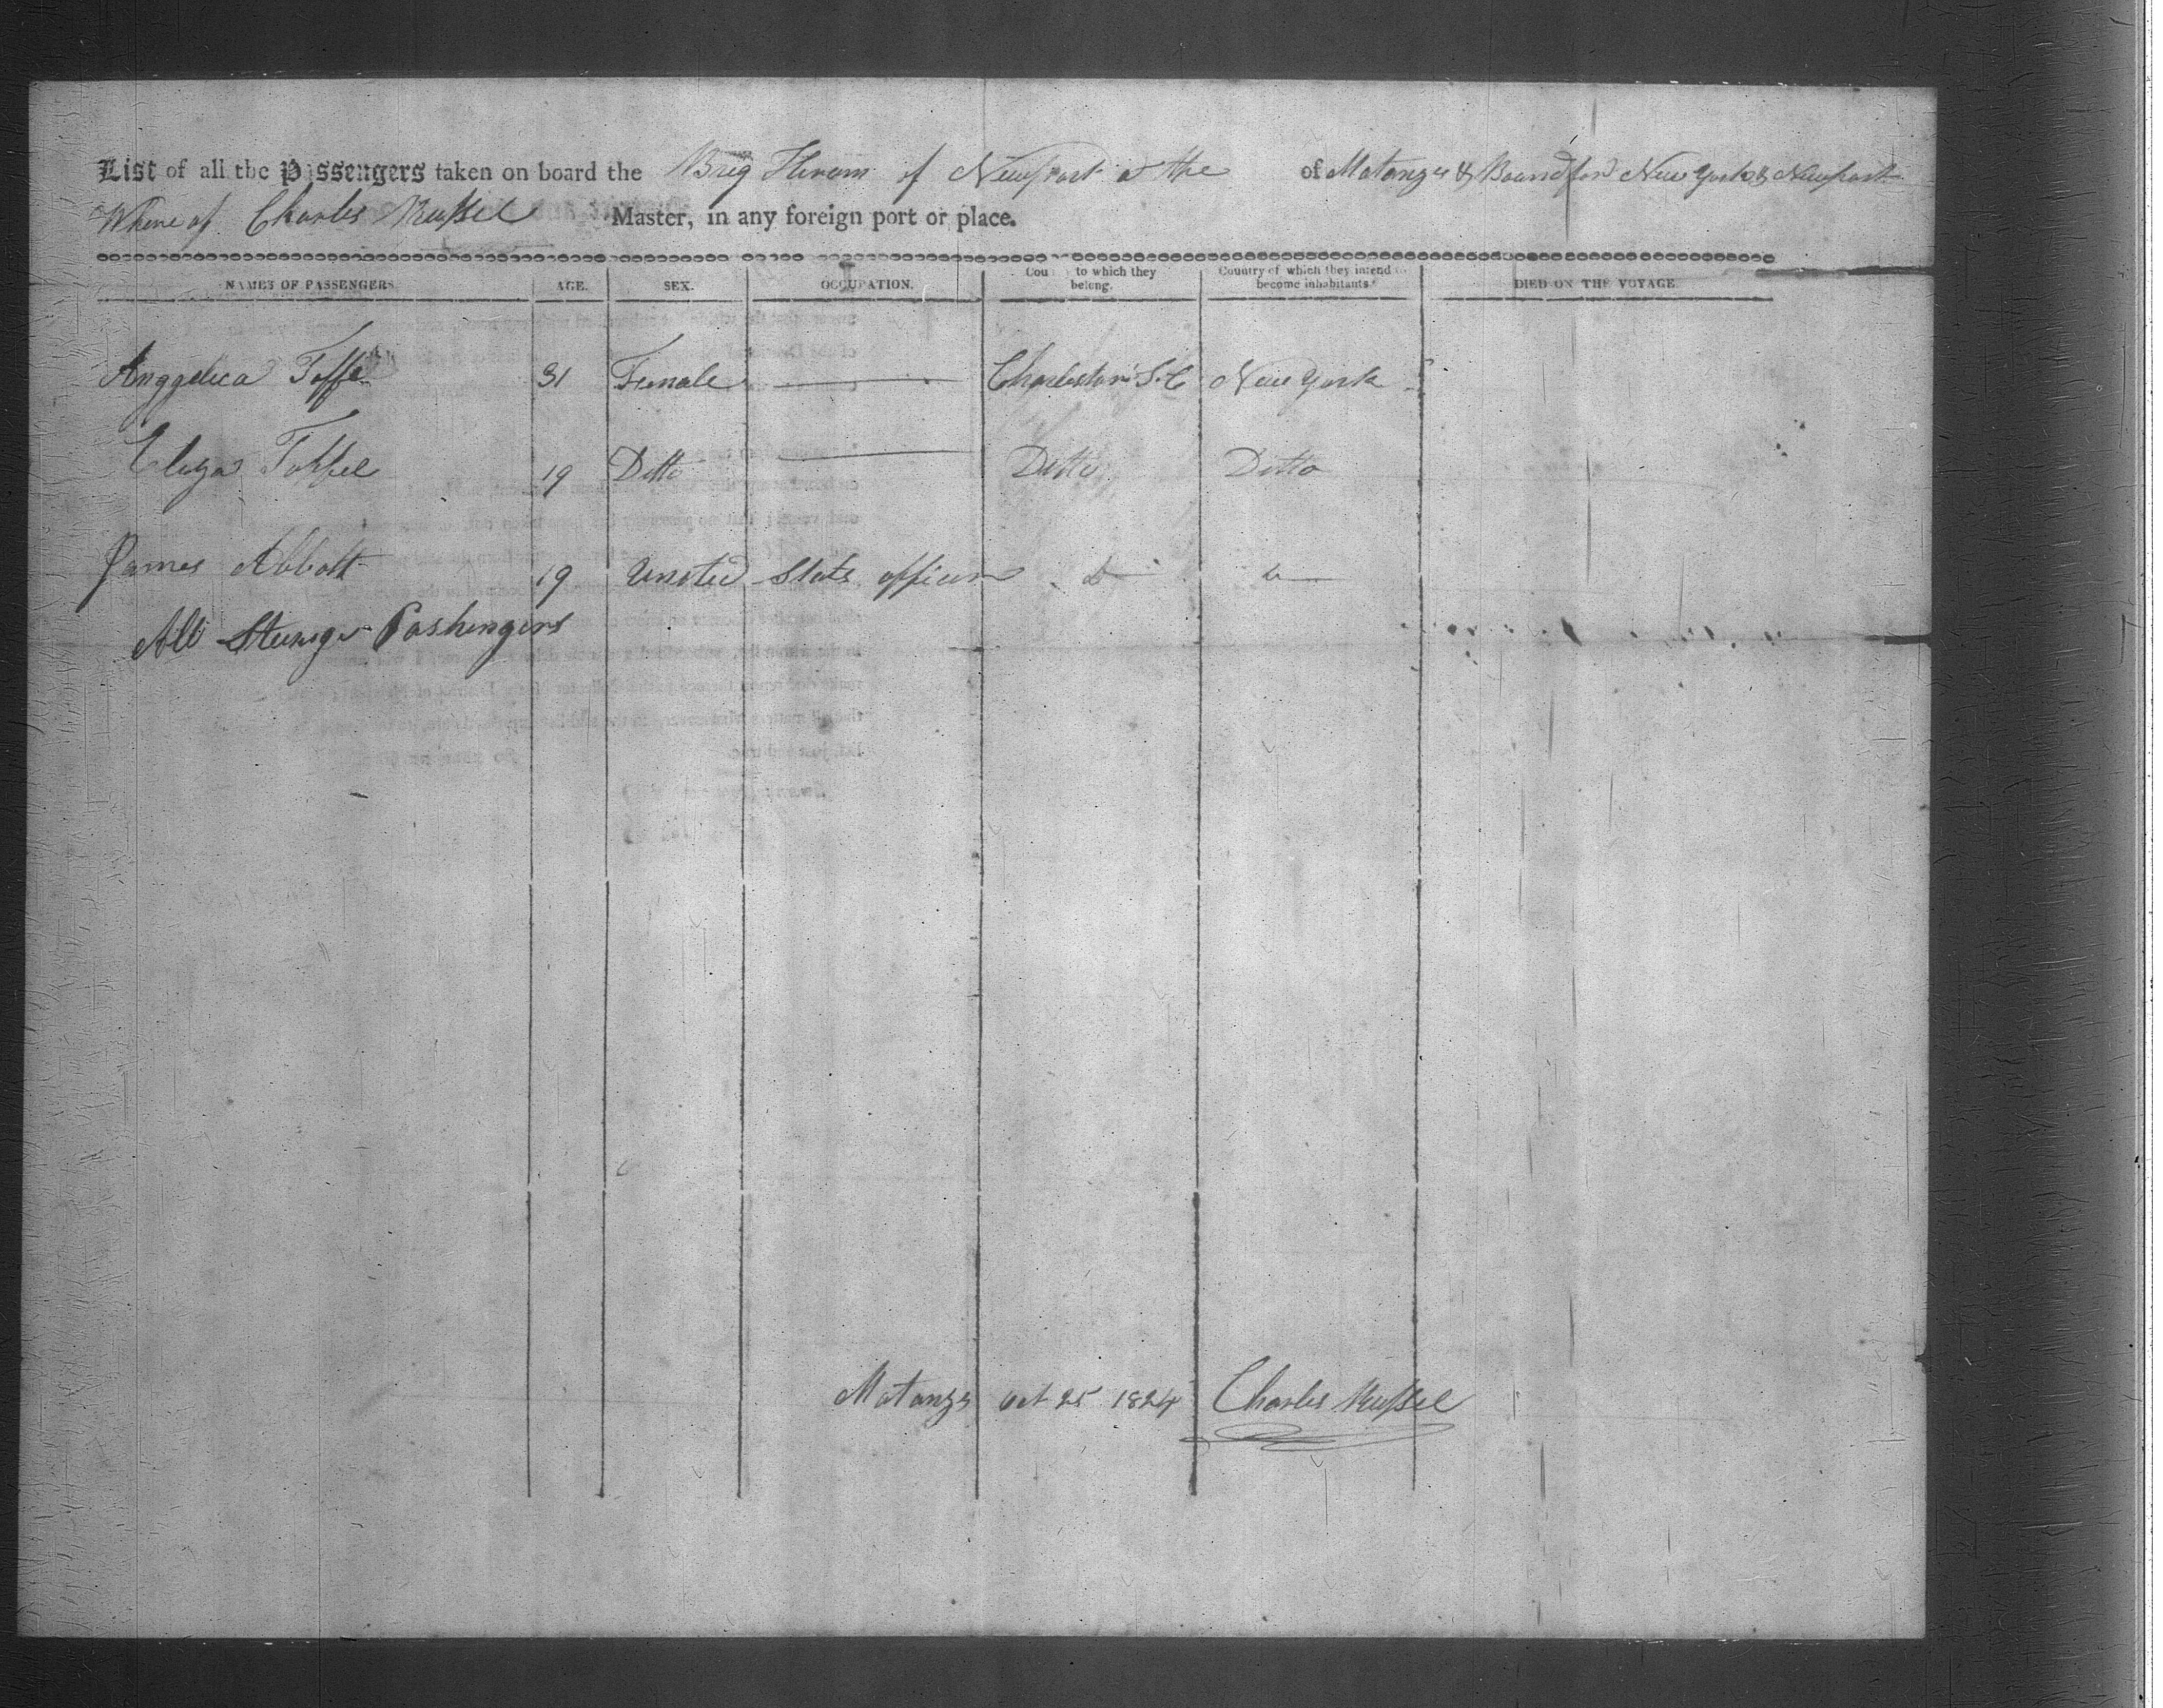 List of all the Passengers taken on board the Brig Hiram of Newport at the of Matanzas & Bound for New York & Newport
Where of Charles Russel Master, in any foreign port or place.
NAMES OF PASSENGERS AGE. SEX. OCCUPATION. Cou to which they belong. Country of which they intend to become inhabitants. DIED ON THE VOYAGE
Anggelica 31 Female Charleston S.C New York
Eliza 19 Ditto Ditto Ditto
James Abbott 19 United States officer D
All Steerage Pashengers
Matanzs Oct 25 1824 Charles Russel